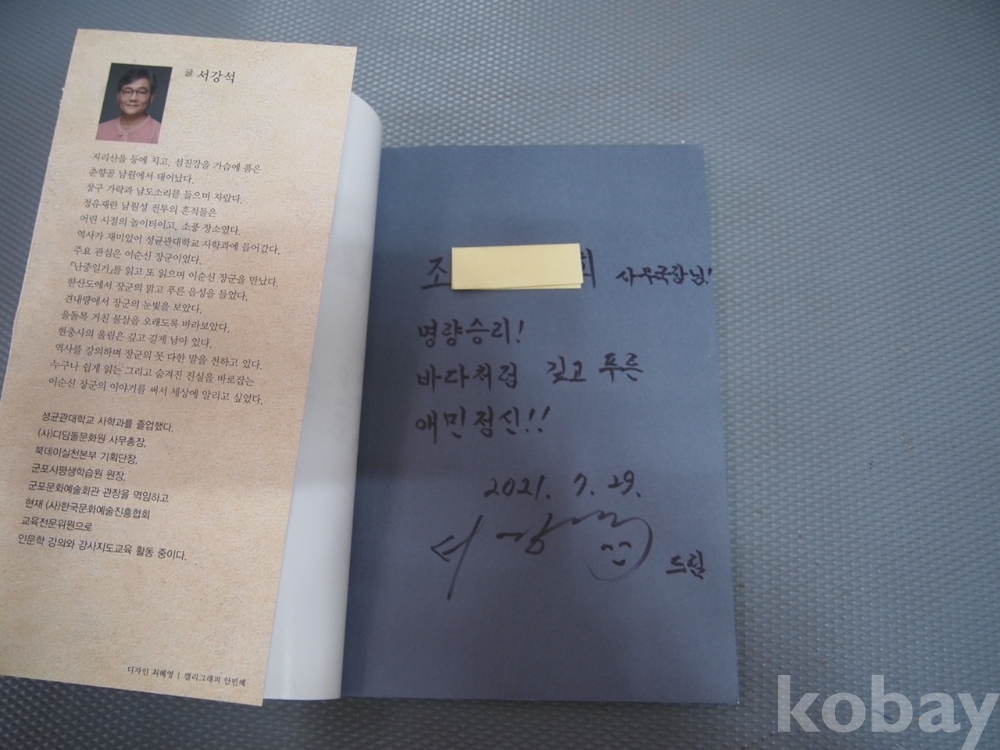 글 서강석
지리산을 등에 지고, 섬진강을 가슴에 품은
춘향골 남원에서 태어났다.
장구 가락과 남도소리를 들으며 자랐다.
정유재란 남원성 전투의 흔적들은
어린 시절의 놀이터이고, 소풍 장소였다.
역사가 재미있어 성균관대학교 사학과에 들어갔다.
주요 관심은 이순신 장군이었다.
『난중일기』를 읽고 또 읽으며 이순신 장군을 만났다.
한산도에서 장군의 맑고 푸른 음성을 들었다.
견내량에서 장군의 눈빛을 보았다.
울돌목 거친 물살을 오래도록 바라보았다.
현충사의 울림은 깊고 길게 남아 있다.
역사를 강의하며 장군의 못 다한 말을 전하고 있다.
누구나 쉽게 읽는 그리고 숨겨진 진실을 바로잡는
이순신 장군의 이야기를 써서 세상에 알리고 싶었다.
성균관대학교 사학과를 졸업했다.
(사)디딤돌문화원 사무총장,
북데이실천본부 기획단장,
군포시평생학습원 원장,
군포문화예술회관 관장을 역임하고
현재 (사)한국문화예술진흥협회
교육전문위원으로
인문학 강의와 강사지도교육 활동 중이다.
디자인 최혜영 | 캘리그래피 안민혜
조 희 사무국장님!
명량승리!
바다처럼 깊고 푸른
애민정신!!
2021. 7. 29.
서강석 드림
kobay